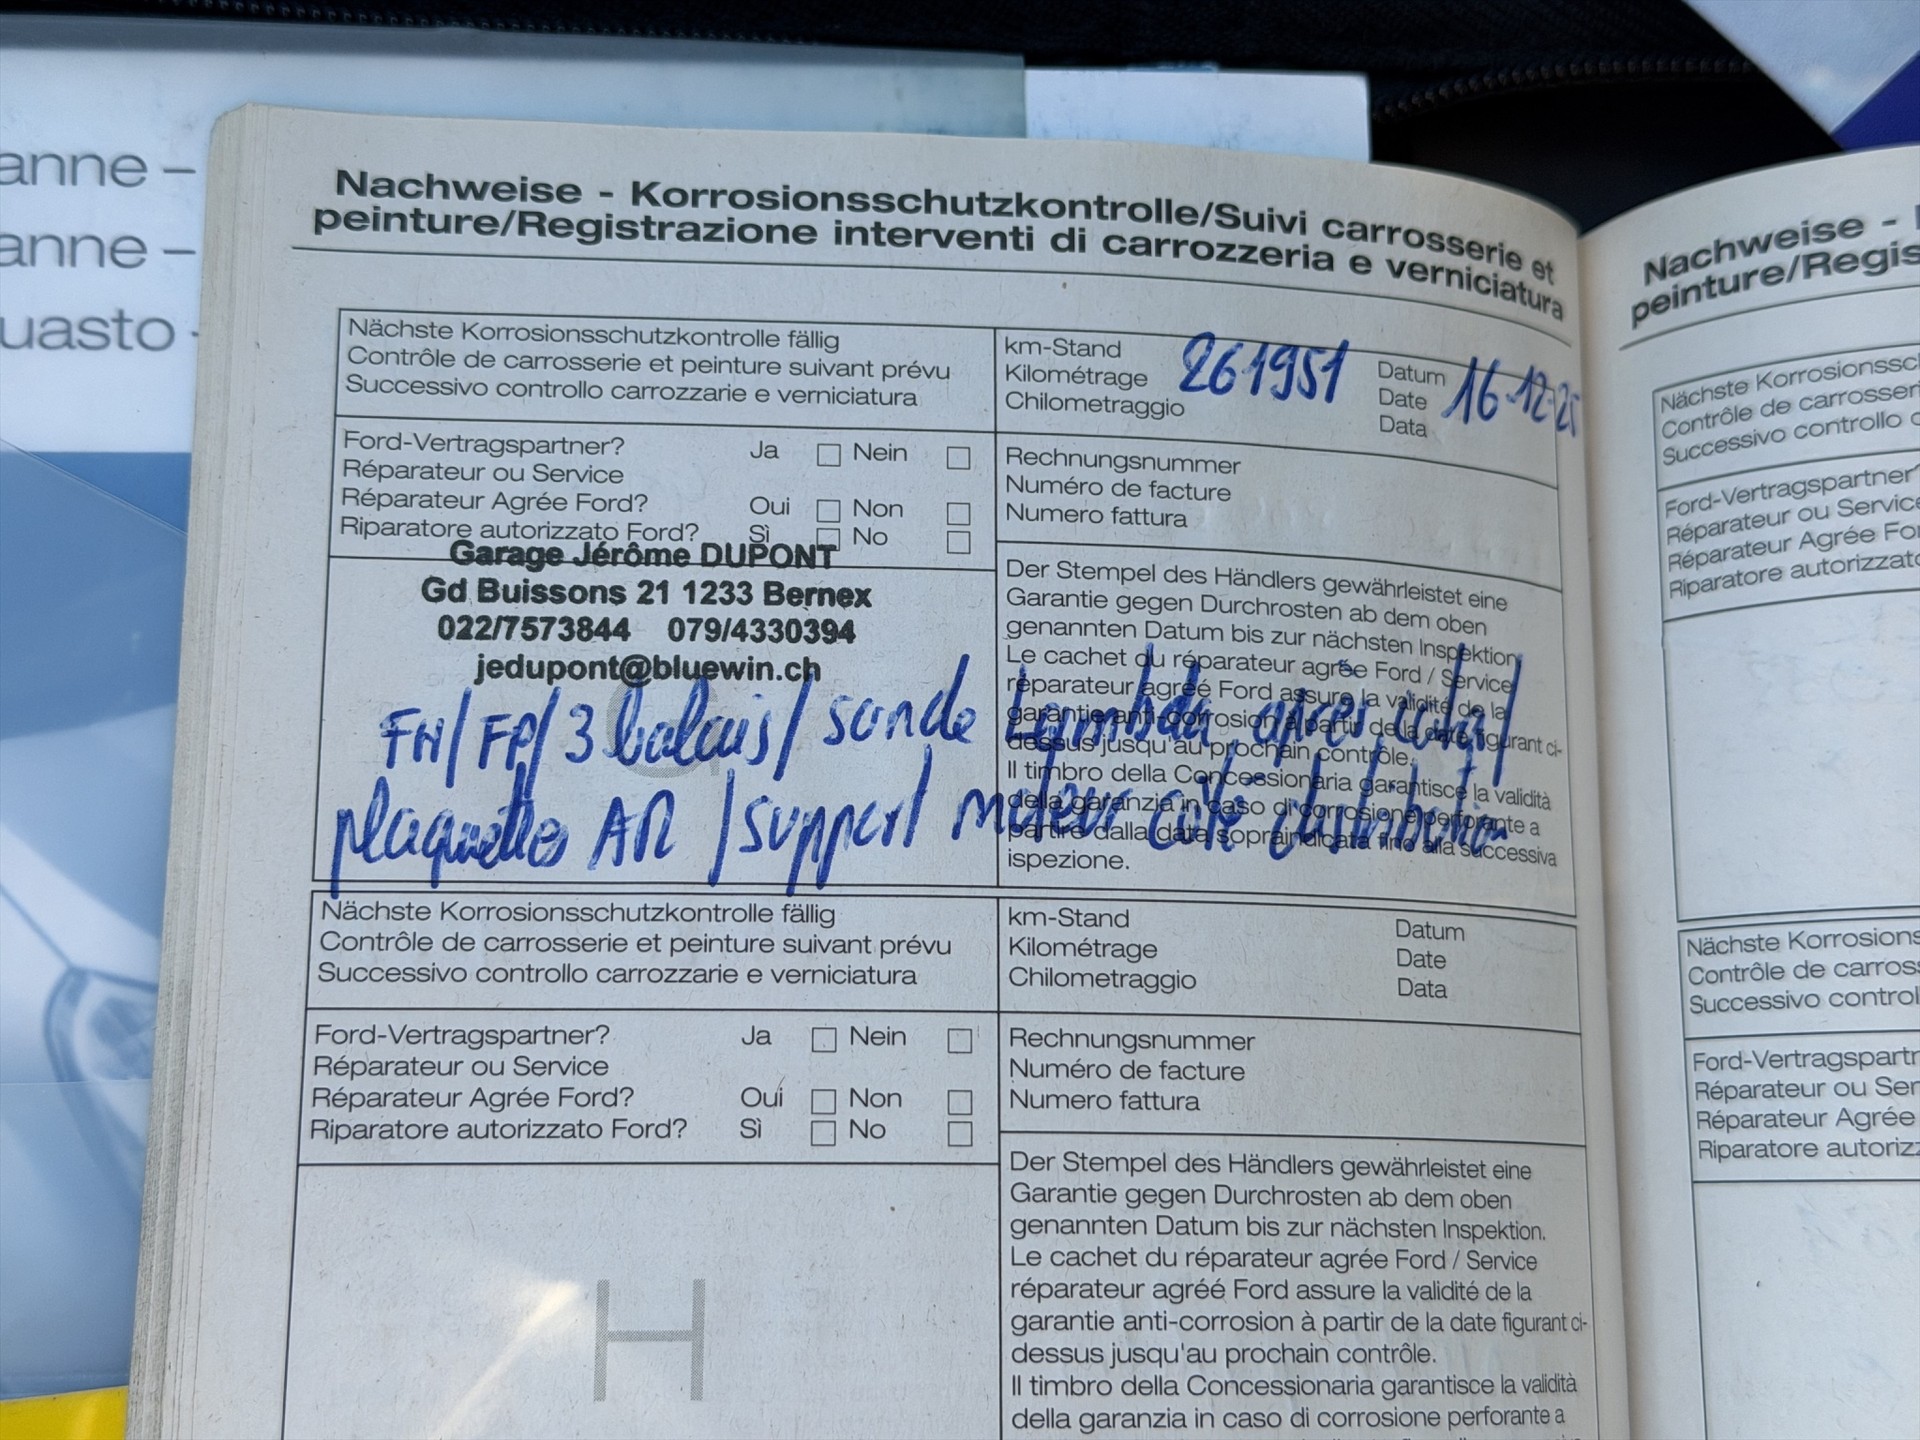 anne –
anne –
uasto
Nachweise - Korrosionsschutzkontrolle/Suivi carrosserie et
peinture/Registrazione interventi di carrozzeria e verniciatura
Nächste Korrosionsschutzkontrolle fällig
Contrôle de carrosserie et peinture suivant prévu
Successivo controllo carrozzarie e verniciatura
km-Stand
Kilométrage
Chilometraggio
261951
Datum
Date
Data
16.12.25
Ford-Vertragspartner?
Réparateur ou Service
Réparateur Agrée Ford?
Riparatore autorizzato Ford?
Ja Nein
Oui Non
Sì No
Rechnungsnummer
Numéro de facture
Numero fattura
Garage Jérôme DUPONT
Gd Buissons 21 1233 Bernex
022/7573844 079/4330394
jedupont@bluewin.ch
FH/ FP/ 3 balais/ sonde Lambda après cata/
plaquettes AR / support moteur côté distribution
Der Stempel des Händlers gewährleistet eine
Garantie gegen Durchrosten ab dem oben
genannten Datum bis zur nächsten Inspektion
Le cachet du réparateur agrée Ford / Service
réparateur agréé Ford assure la validité de la
garantie anti-corrosion à partir de la date figurant ci-
dessus jusqu'au prochain contrôle.
Il timbro della Concessionaria garantisce la validità
della garanzia in caso di corrosione perforante a
partire dalla data sopraindicata fino alla successiva
ispezione.
Nächste Korrosionsschutzkontrolle fällig
Contrôle de carrosserie et peinture suivant prévu
Successivo controllo carrozzarie e verniciatura
km-Stand
Kilométrage
Chilometraggio
Datum
Date
Data
Ford-Vertragspartner?
Réparateur ou Service
Réparateur Agrée Ford?
Riparatore autorizzato Ford?
Ja Nein
Oui Non
Sì No
Rechnungsnummer
Numéro de facture
Numero fattura
H
Der Stempel des Händlers gewährleistet eine
Garantie gegen Durchrosten ab dem oben
genannten Datum bis zur nächsten Inspektion.
Le cachet du réparateur agrée Ford / Service
réparateur agréé Ford assure la validité de la
garantie anti-corrosion à partir de la date figurant ci-
dessus jusqu'au prochain contrôle.
Il timbro della Concessionaria garantisce la validità
della garanzia in caso di corrosione perforante a
Nachweise -
peinture/Regis
Nächste Korrosionssc
Contrôle de carrosser
Successivo controllo
Ford-Vertragspartner?
Réparateur ou Service
Réparateur Agrée For
Riparatore autorizzato
Nächste Korrosions
Contrôle de carross
Successivo control
Ford-Vertragspartn
Réparateur ou Ser
Réparateur Agrée
Riparatore autoriz